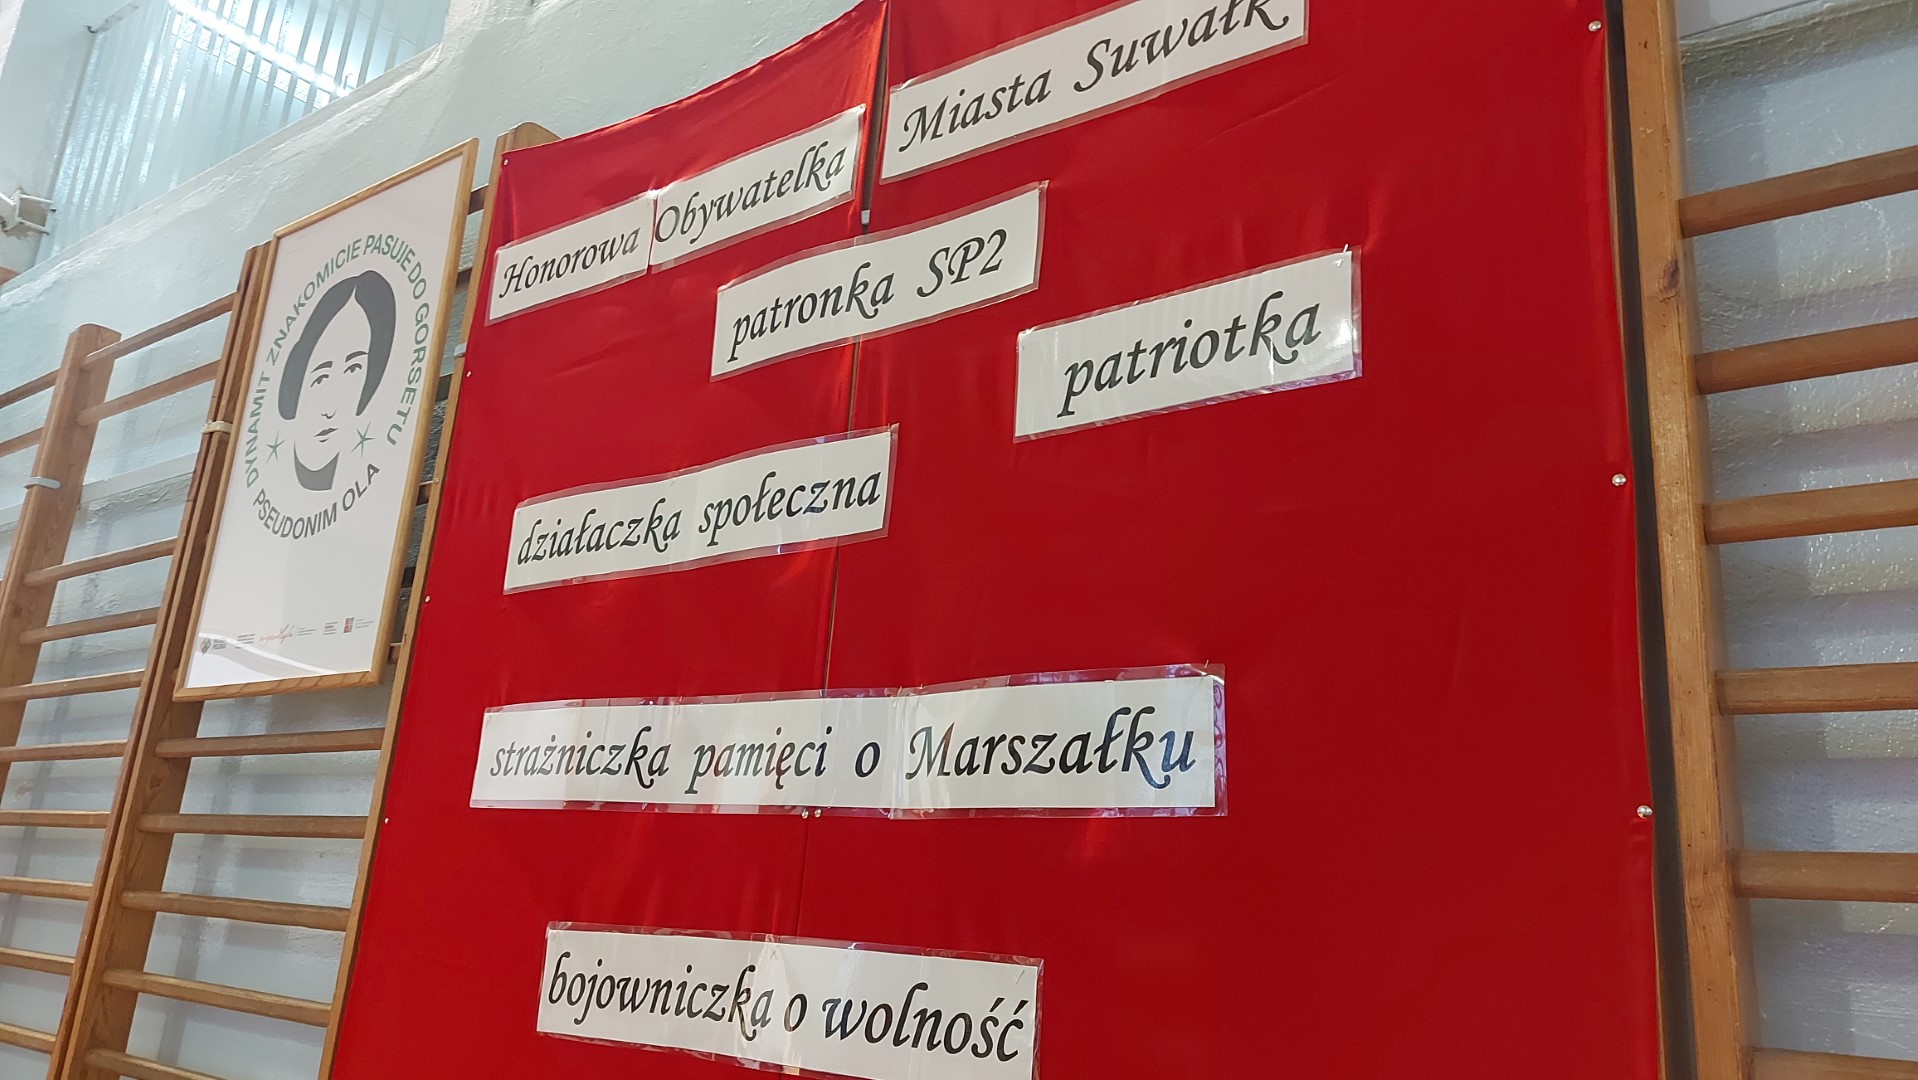 DYNAMIT ZNAKOMICIE PASUJE DO GORSETU
PSEUDONIM OLA
Honorowa Obywatelka
Miasta Suwałk
patronka SP2
patriotka
działaczka społeczna
strażniczka pamięci o Marszałku
bojowniczka o wolność